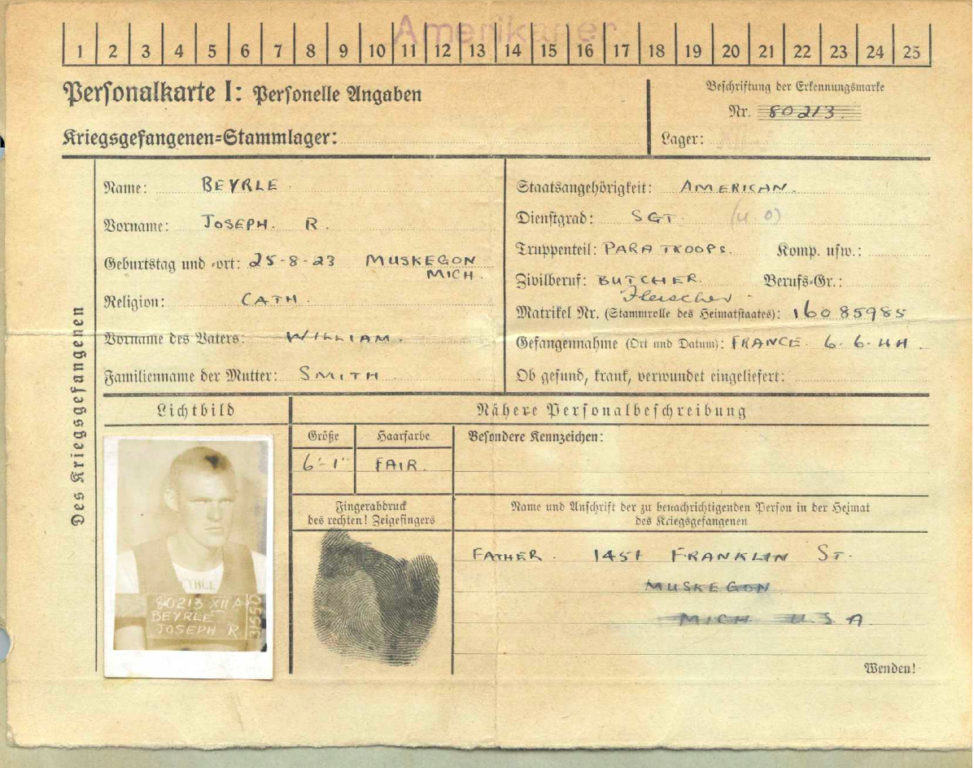 Amerikaner
1 2 3 4 5 6 7 8 9 10 11 12 13 14 15 16 17 18 19 20 21 22 23 24 25
Personalkarte I: Personelle Angaben
Kriegsgefangenen=Stammlager:
Beschriftung der Erkennungsmarke
Nr. 80213
Lager:
Des Kriegsgefangenen
Name: BEYRLE
Vorname: JOSEPH. R.
Geburtstag und -ort: 25-8-23 MUSKEGON
MICH.
Religion: CATH.
Vorname des Vaters: WILLIAM.
Familienname der Mutter: SMITH
Staatsangehörigkeit: AMERICAN.
Dienstgrad: SGT. (U.O)
Truppenteil: PARATROOPS. Komp. usw.:
Zivilberuf: BUTCHER. Berufs-Gr.:
Fleischer
Matrikel Nr. (Stammrolle des Heimatstaates): 16085985
Gefangennahme (Ort und Datum): FRANCE. 6-6-44.
Ob gesund, krank, verwundet eingeliefert:
Lichtbild
Nähere Personalbeschreibung
Größe
6'-1"
Haarfarbe
FAIR.
Besondere Kennzeichen:
Fingerabdruck
des rechten! Zeigefingers
Name und Anschrift der zu benachrichtigenden Person in der Heimat
des Kriegsgefangenen
FATHER. 1451 FRANKLIN ST.
MUSKEGON
MICH U.S.A.
80213 XII A
BEYRLE
JOSEPH R
Wenden!